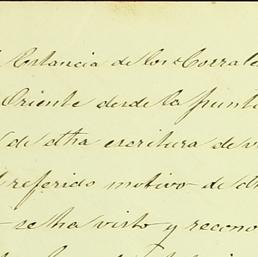 Estancia de los Corrale
Oriente desde la punta
de dha escritura de v
referido motivo de dh
se ha visto y recono